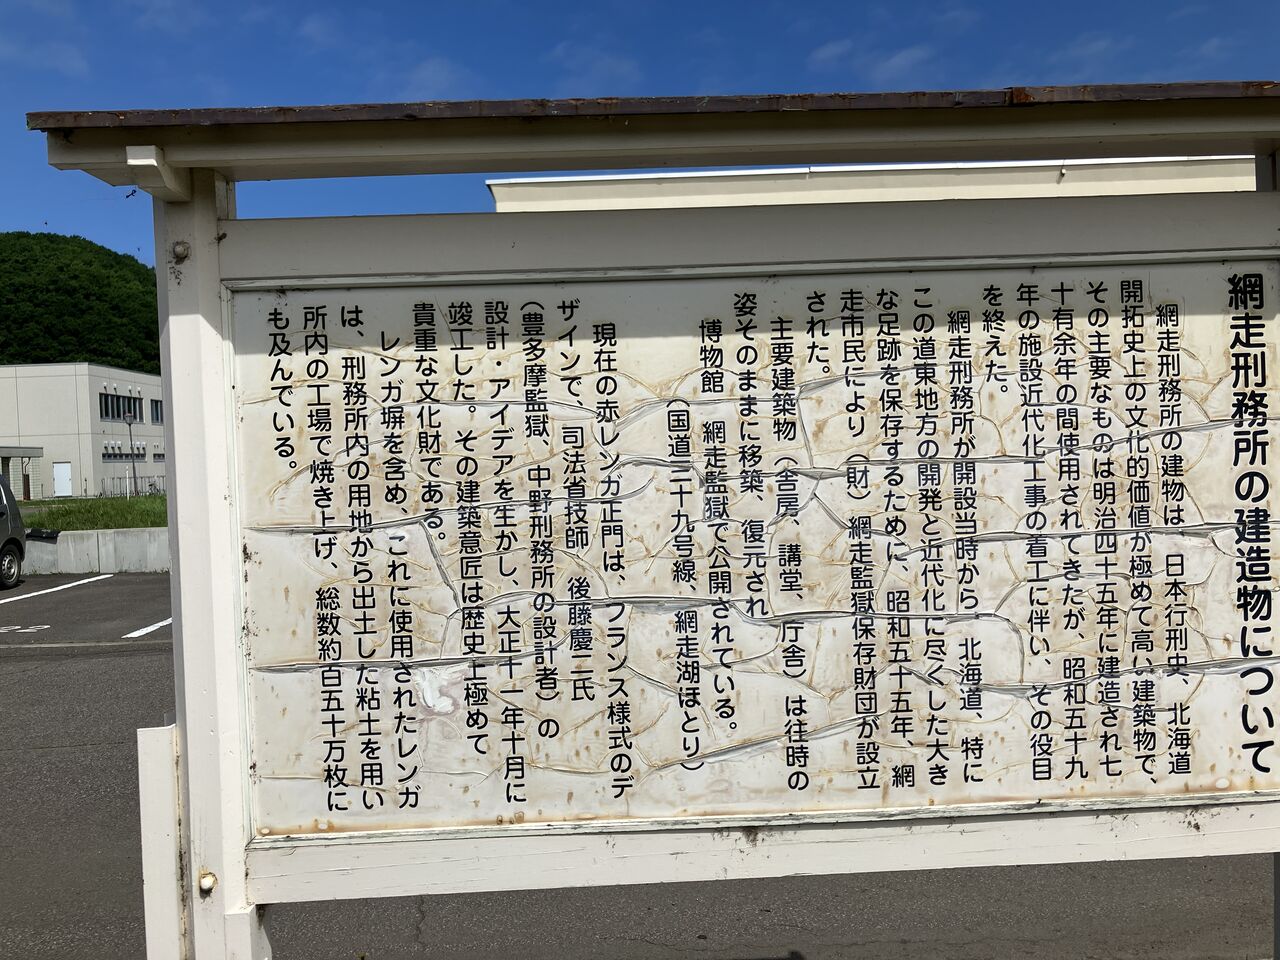 網走刑務所の建造物について
網走刑務所の建物は、日本行刑史、北海道
開拓史上の文化的価値が極めて高い建築物で、
その主要なものは明治四十五年に建造され七
十有余年の間使用されてきたが、昭和五十九
年の施設近代化工事の着工に伴い、その役目
を終えた。
網走刑務所が開設当時から 北海道、特に
この道東地方の開発と近代化に尽くした大き
な足跡を保存するために、昭和五十五年、網
走市民により（財）網走監獄保存財団が設立
された。
主要建築物（舎房、講堂、庁舎）は往時の
姿そのままに移築、復元され
博物館 網走監獄で公開されている。
（国道三十九号線、網走湖ほとり）
現在の赤レンガ正門は、フランス様式のデ
ザインで、司法省技師 後藤慶二氏
（豊多摩監獄、中野刑務所の設計者）の
設計・アイデアを生かし、大正十一年十月に
竣工した。その建築意匠は歴史上極めて
貴重な文化財である。
レンガ塀を含め、これに使用されたレンガ
は、刑務所内の用地から出土した粘土を用い
所内の工場で焼き上げ、総数約百五十万枚に
も及んでいる。